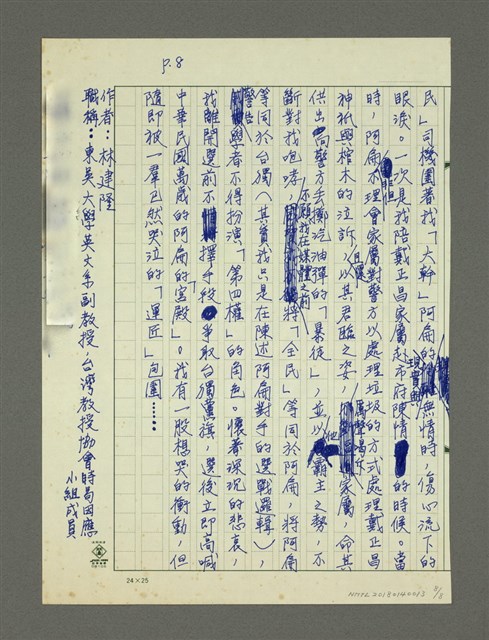 P.8
民」司機圍著找「大幹」阿扁的現實與無情時，傷心流下的
眼淚。一次是我陪戴正昌家屬赴市府陳情的時候。當
時，阿扁非但不理會家屬對警方以處理垃圾的方式處理戴正昌
神祇與棺木的泣訴，且還以其君臨之姿厲聲喝斥家屬，命其
供出向警方丟擲汽油彈的「暴徒」，並以霸主之勢，不
斷對我咆哮，不願我在媒體之前將「全民」等同於阿扁，將阿扁
等同於台獨（其實我只是在陳述阿扁對手的選戰邏輯），
警告學者不得扮演「第四權」的角色。懷著深沉的悲哀，
我離開選前不擇手段爭取台獨黨旗，選後立即高喊
中華民國萬歲的阿扁的「宮殿」。我有一股想哭的衝動，但
隨即被一羣已然哭泣的「運匠」包圍……
作者：林建隆
職稱：東吳大學英文系副教授，台灣教授協會時局因應
小組成員
24×25
NMTL20180140013 8/8